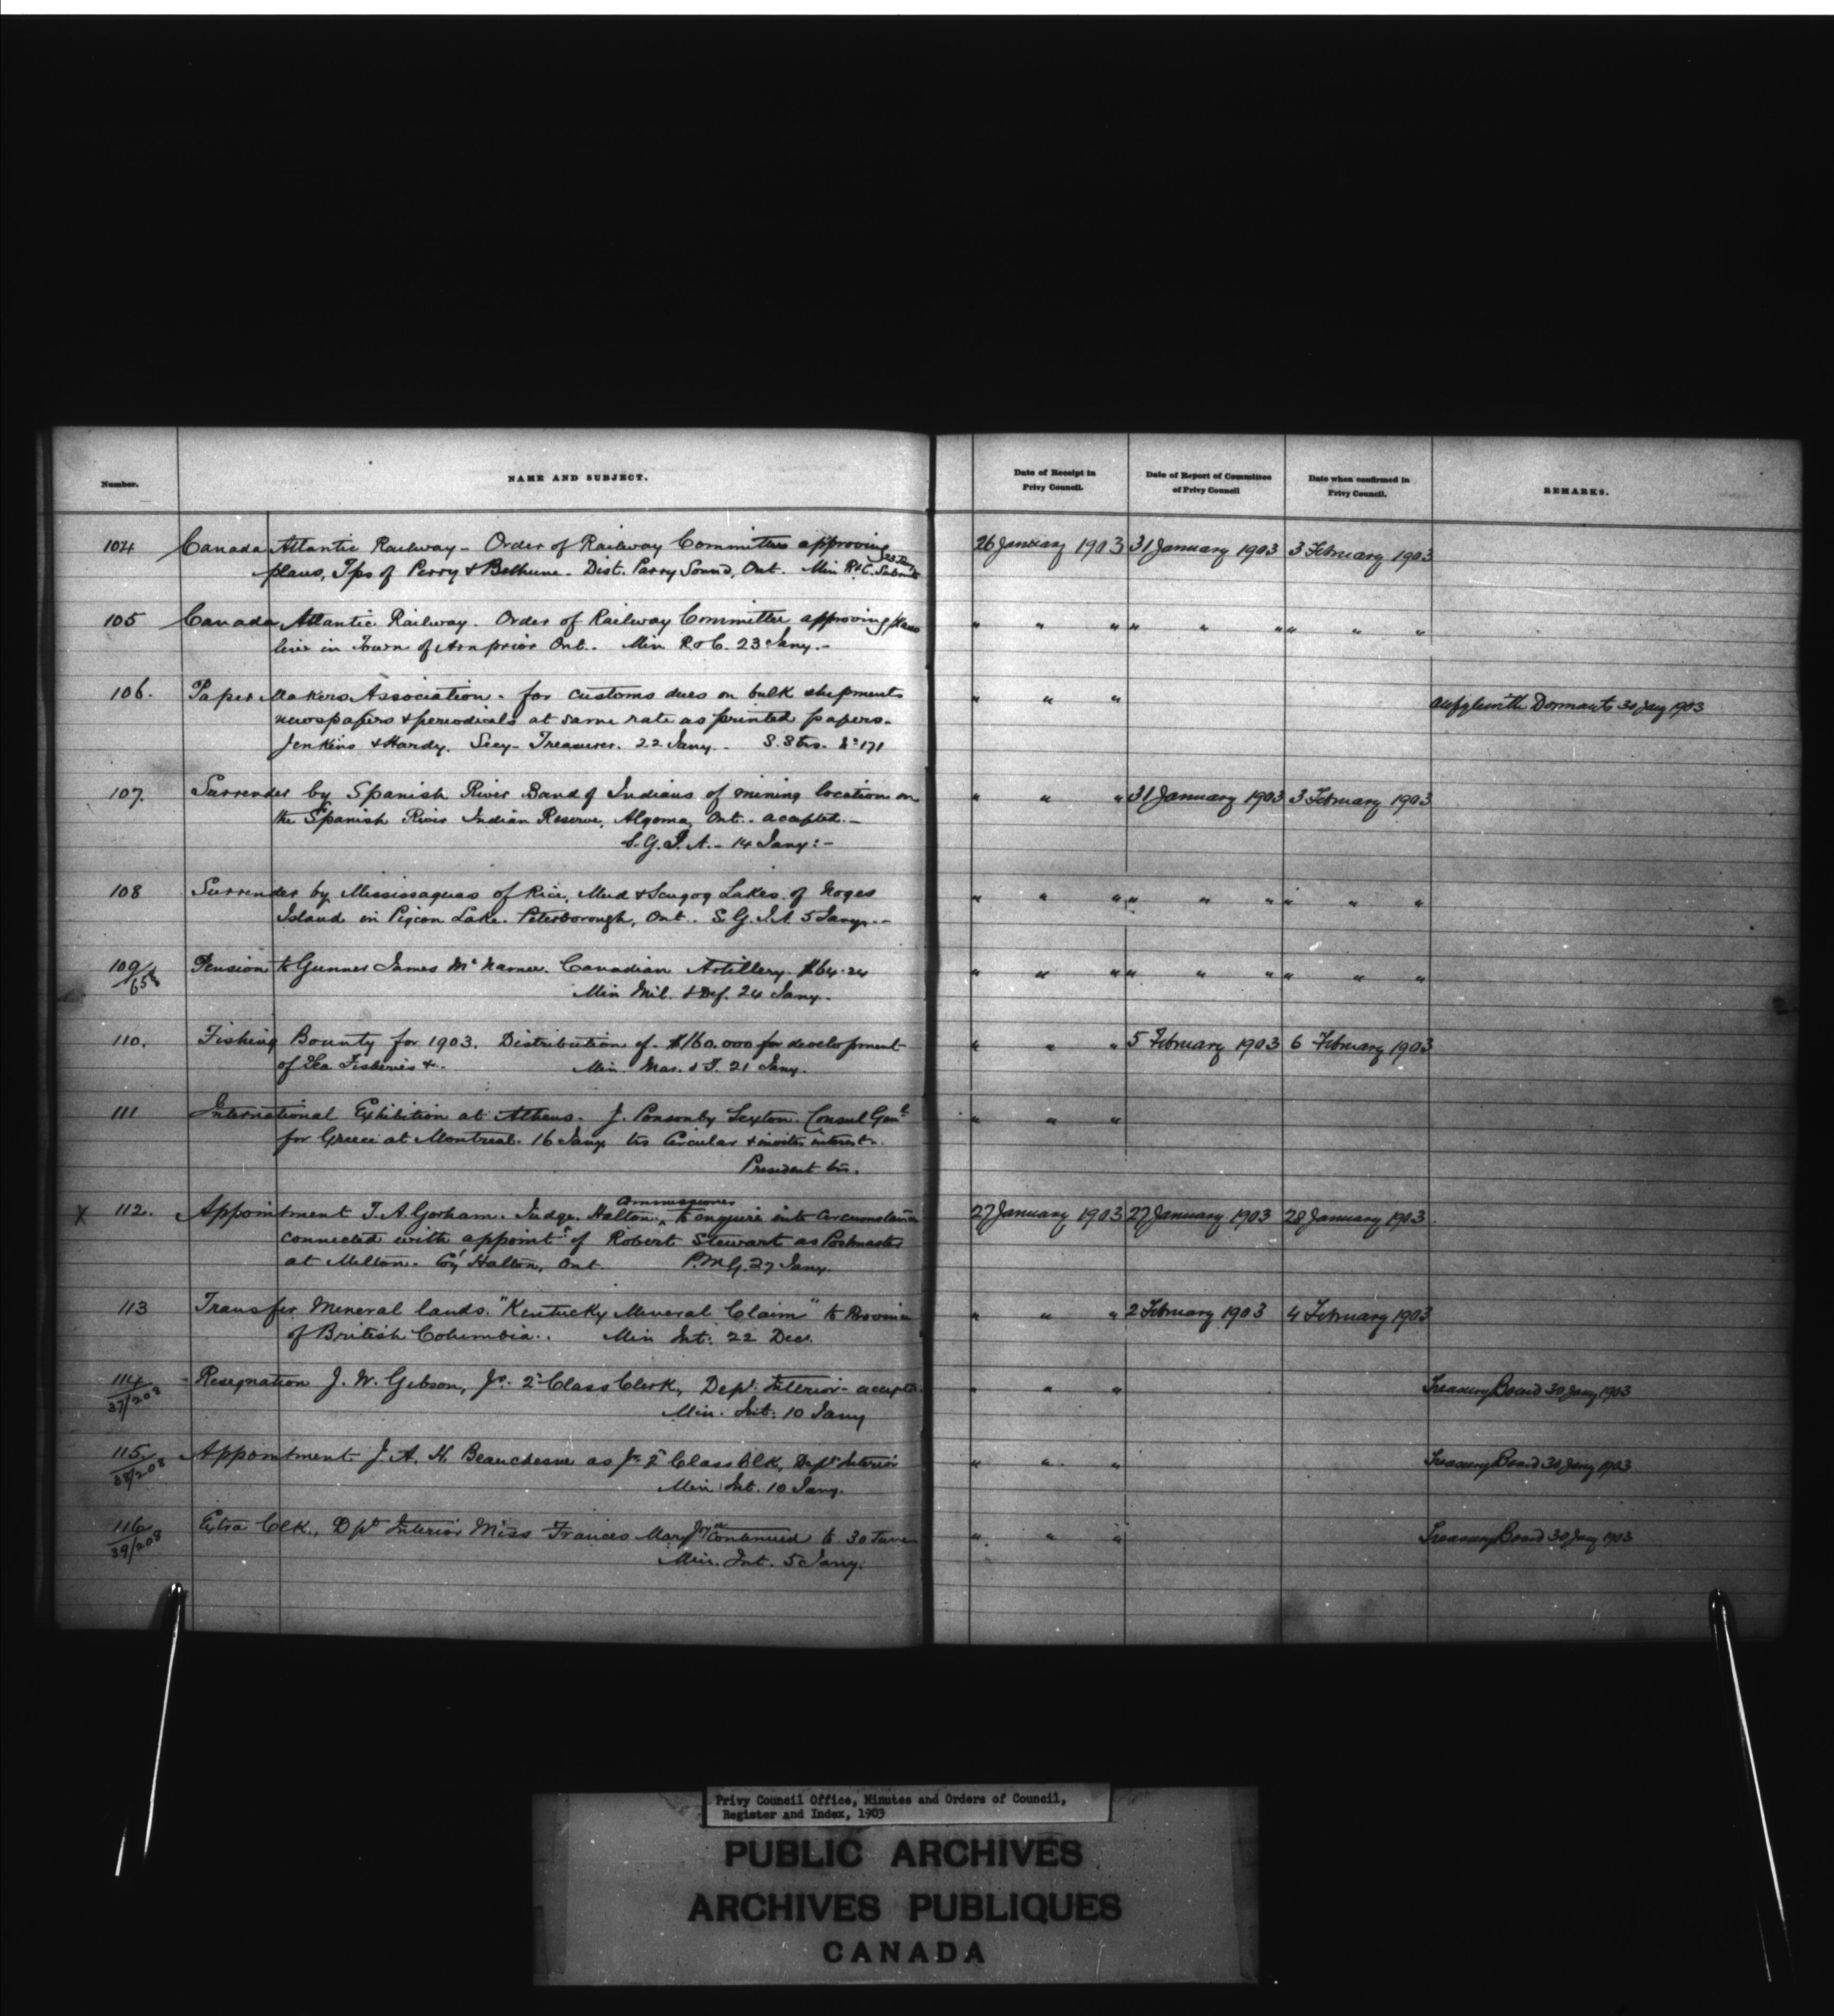 Number.
NAME AND SUBJECT.
Date of Receipt in
Privy Council.
Date of Report of Committee
of Privy Council
Date when confirmed in
Privy Council.
REMARKS.
104 Canada Atlantic Railway - Order of Railway Committee approving 26 January 1903 31 January 1903 3 February 1903
plans, Tps of Perry & Bethune. Dist. Parry Sound, Ont. Min R & C.
105 Canada Atlantic Railway. Order of Railway Committee approving plans " " " " " " " " "
line in Town of Arnprior Ont. Min R & C. 23 Jany.-
106. Paper Makers Association. for customs dues on bulk shipments " " " Dormants 30 Jany 1903
newspapers & periodicals at same rate as printed papers.
Jenkins & Hardy. Secy-Treasurer. 22 Jany. S. S trs. No 171
107. Surrender by Spanish River Band of Indians of mining location on " " " 31 January 1903 3 February 1903
the Spanish River Indian Reserve, Algoma, Ont. - accepted.-
S.G.I.A. - 14 Jany:-
108 Surrender by Mississaguas of Rice, Mud & Scugog Lakes. of Noges " " " " " " " " "
Island in Pigeon Lake. Peterborough, Ont. S.G.I.A 5 Jany.-
109 Pension to Gunner James Canadian Artillery. $64.24 " " " " " " " " "
Min Mil. & Def. 24 Jany.
110. Fishing Bounty for 1903. Distribution of $160.000 for development " " " 5 February 1903 6 February 1903
of Sea Fisheries &c. Min. Mar. & F. 21 Jany.
111 International Exhibition at Athens. J. Ponsonby Sexton. Consul Genl " " "
for Greece at Montreal. 16 Jany trs Circular & invites interest.
President trs.
Commissioner
X 112. Appointment T. A. Gorham. Judge. Halton. ^ to enquire into circumstances 27 January 1903 27 January 1903 28 January 1903
connected with appointt of Robert Stewart as Postmaster
at Milton. Coy Halton, Ont. P.M.G. 27 Jany.
113 Transfer Mineral lands. "Kentucky Mineral Claim" to Province " " " 2 February 1903 4 February 1903
of British Columbia.. Min Int: 22 Dec.
114 Resignation J. W. Gibson, Jr. 2d Class Clerk, Dept. Interior - accepted " " " Treasury Board 30 Jany 1903
37/208 Min. Int: 10 Jany
115. Appointment J. A. H. Beauchesne as Jr. 2d Class Clk, Dept Interior " " " Treasury Board 30 Jany 1903
38/208 Min. Int. 10 Jany.
116 Extra Clk., Dpt Interior Miss Frances Mary Continued to 30 June " " " Treasury Board 30 Jany 1903
39/208 Min. Int. 5 Jany.
Privy Council Office, Minutes and Orders of Council,
Register and Index, 1903
PUBLIC ARCHIVES
ARCHIVES PUBLIQUES
CANADA